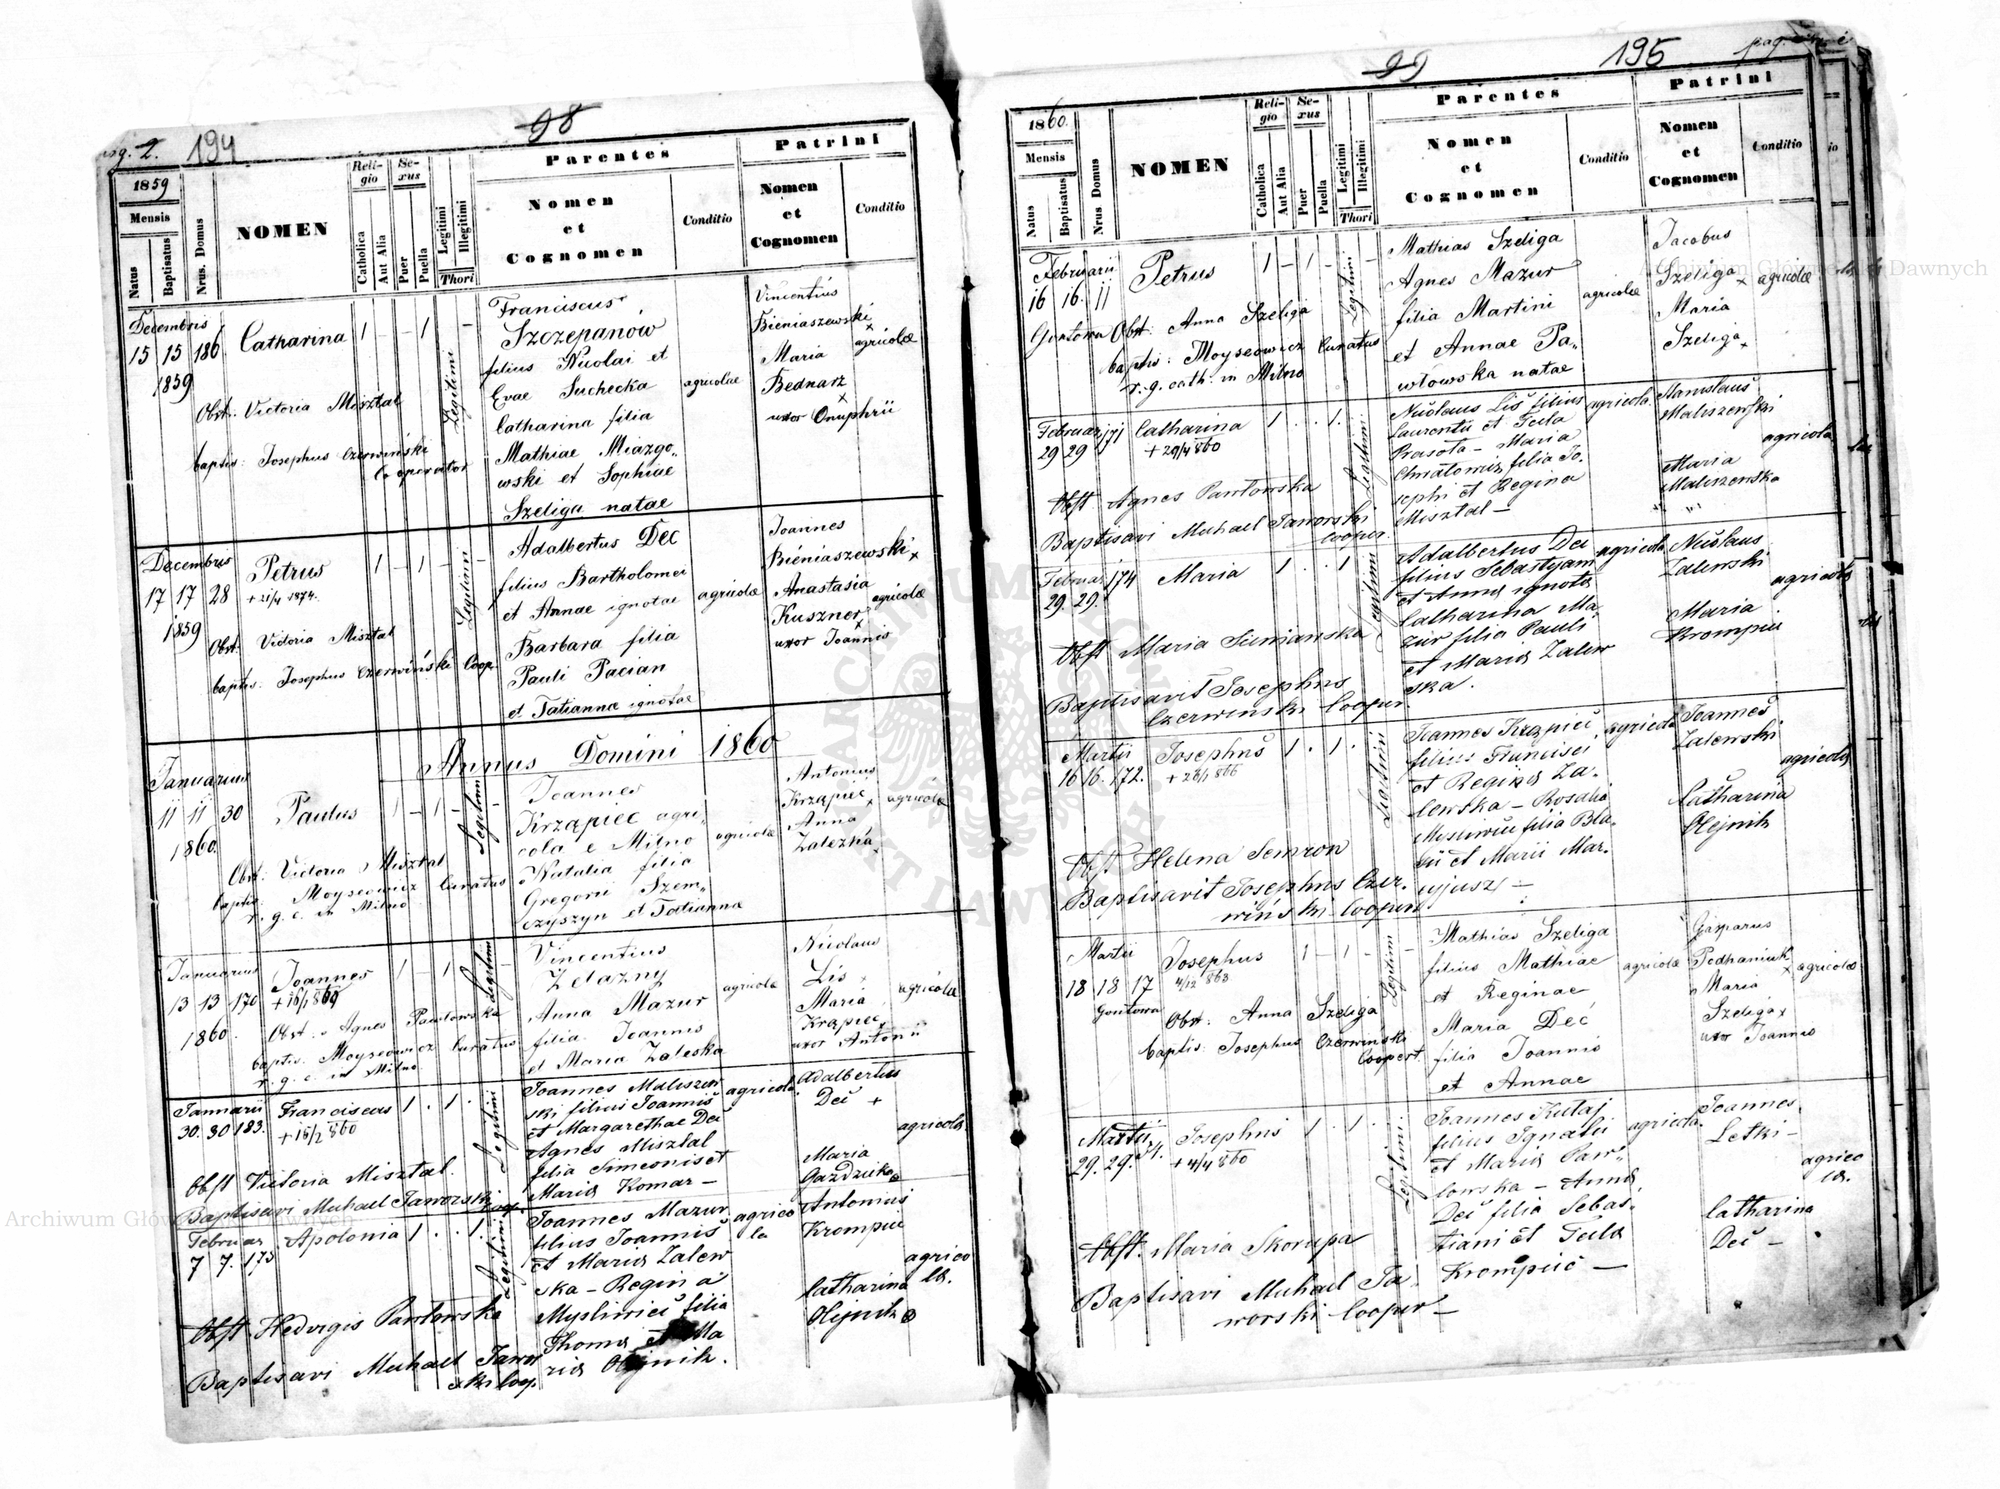 pag. 2. 194 98
1859
Mensis
Natus
Baptisatus
Nrus. Domus
NOMEN
Reli-
gio
Catholica
Aut Alia
Se-
xus
Puer
Puella
Legitimi
Illegitimi
Thori
Parentes
Nomen
et
Cognomen
Conditio
Patrini
Nomen
et
Cognomen
Conditio
Decembris
15 15 186 Catharina 1 - - 1 -
1859
Obst: Victoria Misztal
baptis: Josephus Czerwiński
Cooperator
Legitimi
Franciscus
Szczepanów
filius Nicolai et
Evae Suchecka
Catharina filia
Mathiae Miazgo„
wski et Sophiae
Szeliga natae
agricolae
Vincentius
Bieniaszewski
x
Maria
Bednarz
x
uxor Onuphrii
agricolae
Decembris
17 17 28 Petrus 1 - 1 - -
+ 21/4 1874.
1859
Obst: Victoria Misztal
baptis: Josephus Czerwiński Coop
Legitimi
Adalbertus Dec
filius Bartholomei
et Annae ignotae
Barbara filia
Pauli Pacian
et Tatianna ignotae
agricolae
Joannes
Bieniaszewski x
Anastasia
Kuszner x
uxor Joannis
agricolae
Annus Domini 1860
Januarius
11 11 30 Paulus 1 - 1 - -
1860.
Obst: Victoria Misztal
baptis: Moyseowicz Curatus
r. g. c. in Milno
Legitimi
Joannes
Krząpiec agri„
cola e Milno
Natalia filia
Gregorii Szem„
czyszyn et Tatianna
agricolae
Antonius
Krząpiec x
Anna
Zalezka x
agricolae
Januarius
13 13 170 Joannes 1 - 1 - -
+ 16/1 869
1860.
Obst: Agnes Pawlowska
baptis: Moyseowicz Curatus
r. g. c. in Milno
Legitimi
Vincentius
Zelazny
Anna Mazur
filia Joannis
et Maria Zaleska
agricolae
Nicolaus
Lis x
Maria
Krąpiec x
uxor Antonii
agricolae
Januarii
30. 30 183. Franciscus 1 . 1 .
+ 15/2 860
Obst Victoria Misztal.
Baptisavi Michael Jaworski Coop.
Legitimi
Joannes Maliszew
ski filius Joannis
et Margarethae Deć
Agnes Misztal
filia Simeonis et
Maria Komar —
agricola
Adalbertus
Deć +
Maria
Gazdzicka
agricola
Februar
7 7. 173 Apolonia 1 . . 1.
Obst Hedvigis Pawlowska
Baptisavi Michael Jawor
ski Coop.
Legitimi
Joannes Mazur
filius Joannis
et Maria Zalew
ska — Regina
Mysliwiec filia
Thoma et Ma
ria Olejnik.
agrico
la
Antonius
Krompiec
Catharina
Olejnik
agrico
la.
99 195
1860.
Mensis
Natus
Baptisatus
Nrus Domus
NOMEN
Reli-
gio
Catholica
Aut Alia
Se-
xus
Puer
Puella
Legitimi
Illegitimi
Thori
Parentes
Nomen
et
Cognomen
Conditio
Patrini
Nomen
et
Cognomen
Conditio
Februarii
16 16. 11 Petrus 1 - 1 - -
Gontowa Obst: Anna Szeliga
baptis: Moyseowicz Curatus
r. g. cath. in Milno
Legitimi
Mathias Szeliga
Agnes Mazur
filia Martini
et Annae Pa„
wlowska natae
agricolae
Jacobus
Szeliga x
Maria
Szeliga x
agricolae
Februar
29 29 171 Catharina 1 . . 1.
+ 29/4 860
Obst Agnes Pawlowska
Baptisavi Michael Jaworski
Cooper.
Legitimi
Nicolaus Lis filius
Laurentii et Tecla
Prasota — Maria
filia Jo„
sephi et Regina
Misztal —
agricola
Stanislaus
Maliszewski
Maria
Maliszewska
agricola
Februar
29. 29. 174 Maria 1 . . 1
Obst Maria Sumianska
Baptisavit Josephus
Czerwinski Cooper.
Legitimi
Adalbertus Deć
filius Sebastyani
et Anna ignota
Catharina Ma„
zur filia Pauli
et Maria Zalew
ska.
agricola
Nicolaus
Zalewski
Maria
Krompiec
agricola
Martii
16 16. 172. Josephus 1 . 1 .
Obst Helena Semzon
Baptisavit Josephus Czer„
wiński Cooper
Legitimi
Joannes Krząpieć
filius Francisci
et Regina Za„
lewska — Rosalia
filia Bla„
sii et Marii Mar„
agricola
Joannes
Zalewski
Catharina
Olejnik
agricola
Martii
18 18 17 Josephus 1 - 1 - -
4/12 863
Gontowa
Obst: Anna Szeliga
baptis: Josephus Czerwiński
Coopert.
Legitimi
Mathias Szeliga
filius Mathiae
et Reginae
Maria Deć
filia Joannis
et Annae
agricolae
Gasparus
Podhaniuk x
Maria
Szeliga x
uxor Joannis
agricolae
Martii
29. 29. Josephus 1 . 1 .
+ 4/4 860
Obst. Maria Skorupa
Baptisavi Michael Ja„
worski Cooper —
Legitimi
Joannes Kutaj
filius Ignatii
et Maria Paw„
lowska — Anna
Deć filia Sebas„
tiani et Tecla
Krompieć —
agricola
Joannes
Letki —
Catharina
Deć —
agrico
la.
Archiwum Główne Akt Dawnych
Archiwum Główne Akt Dawnych
ARCHIWUM GŁÓWNE AKT DAWNYCH